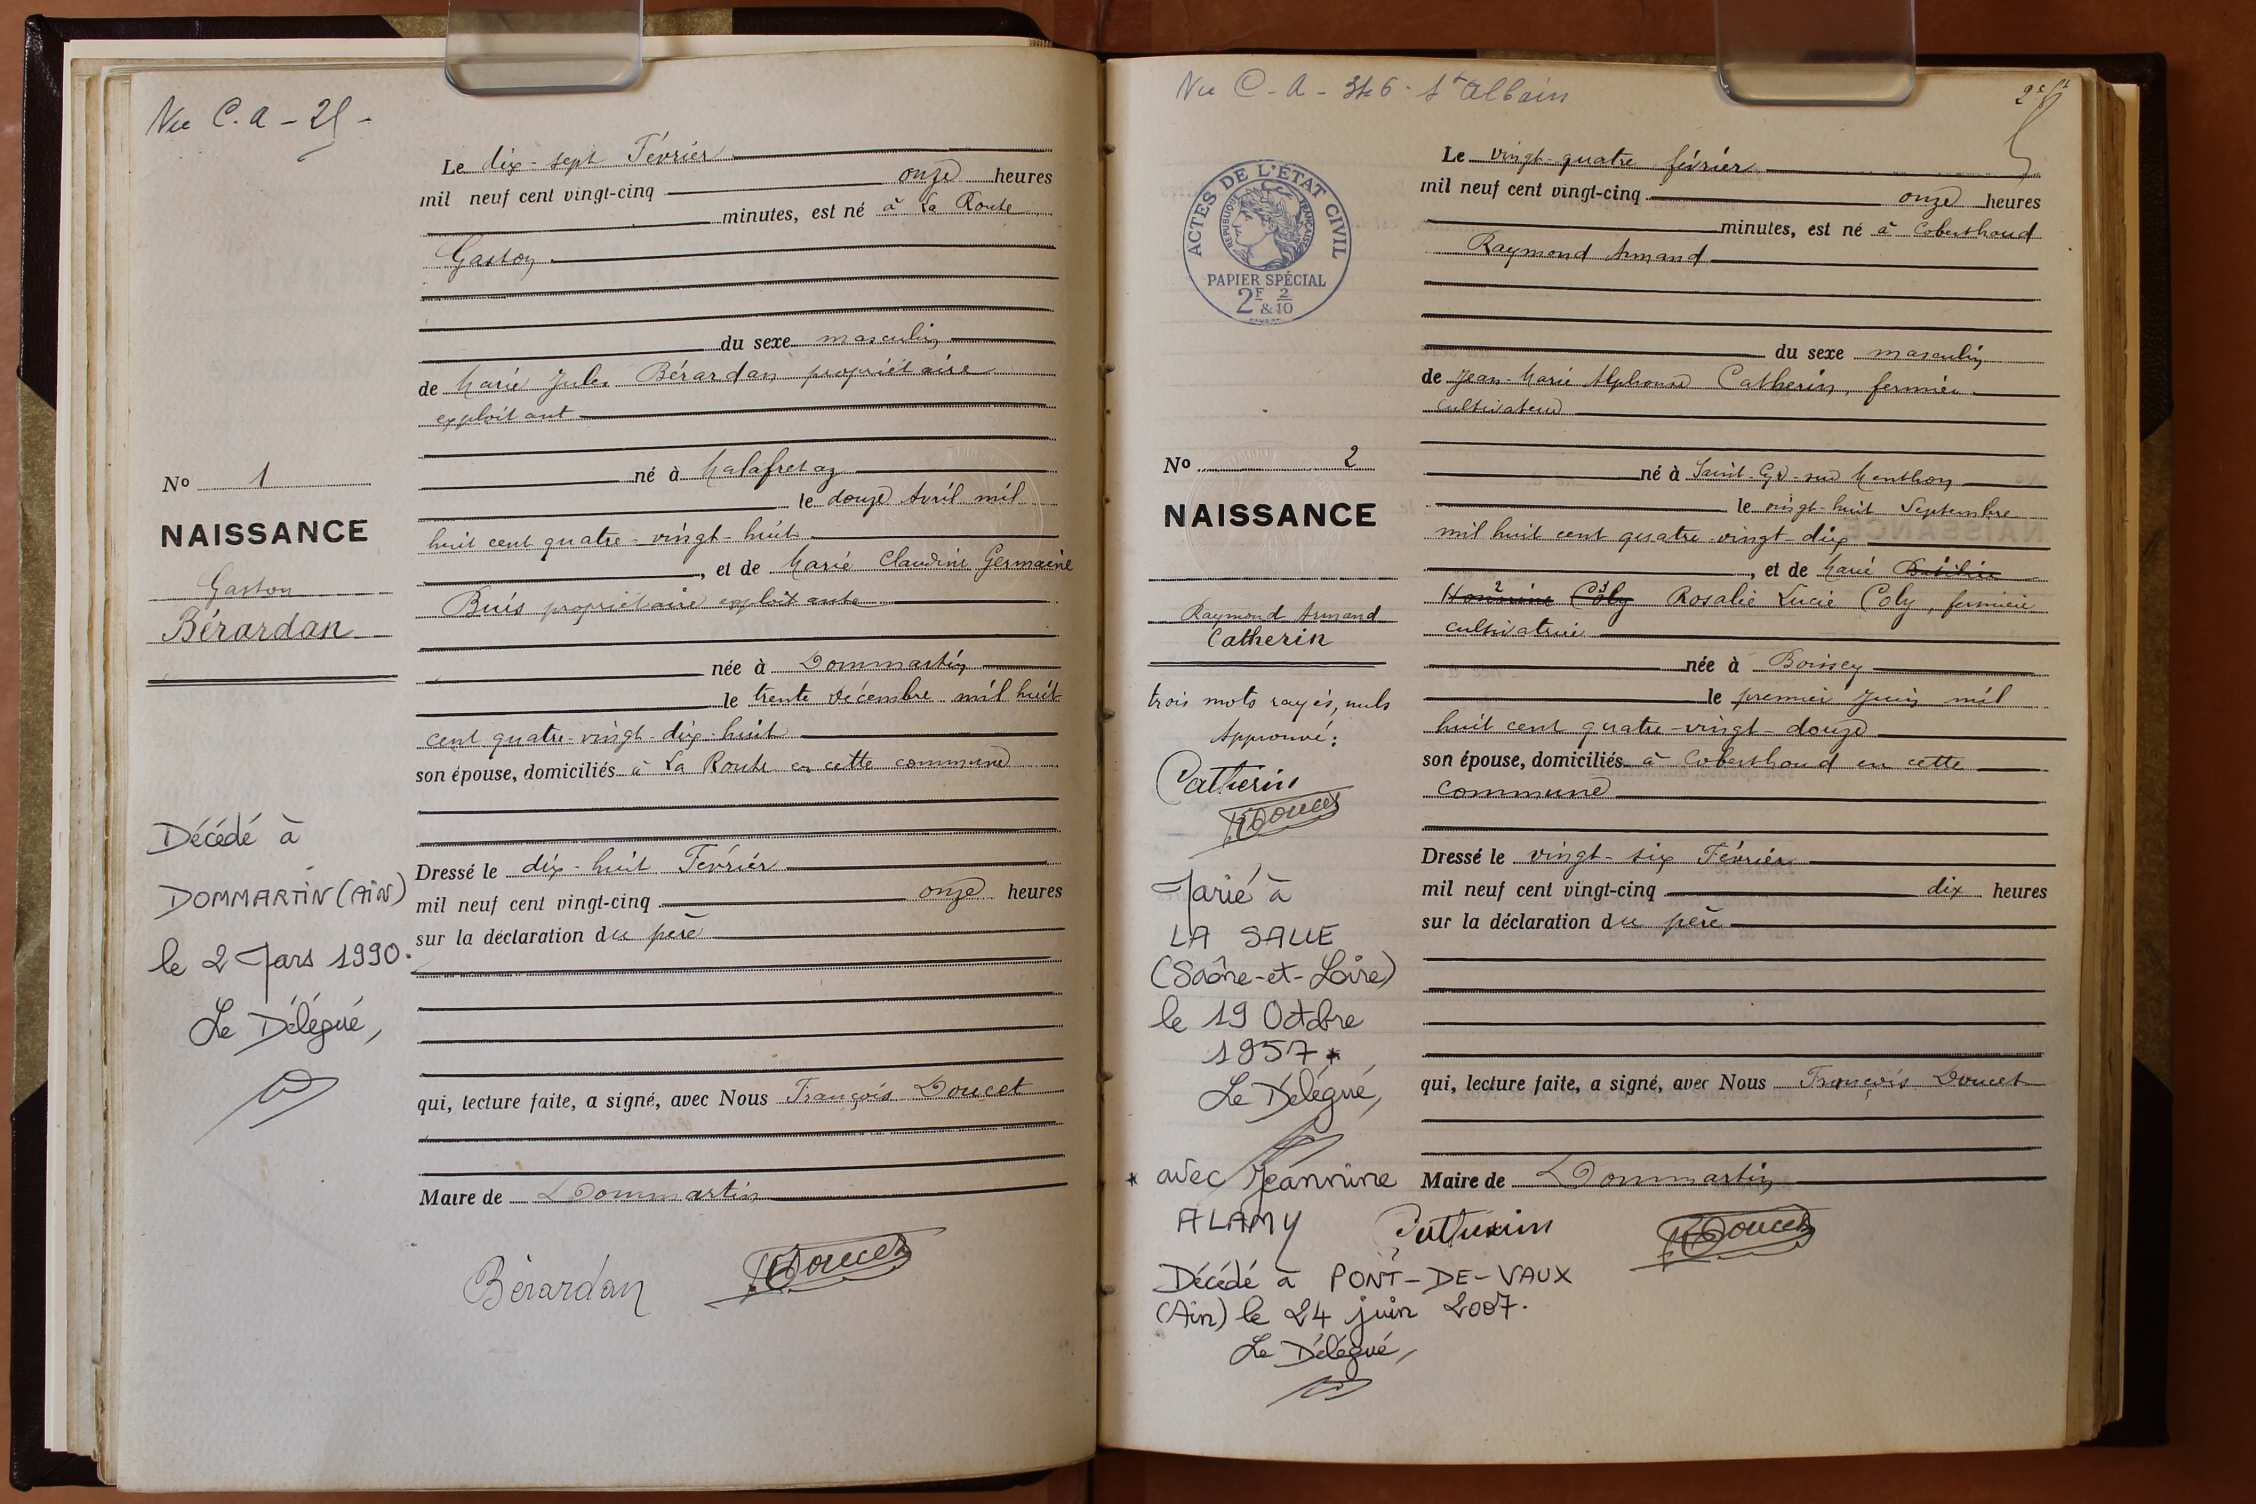 Vu C. A - 25 -
Le dix-sept Février
mil neuf cent vingt-cinq onze heures
minutes, est né à La Route
Gaston
du sexe masculin
de Marie Jules Bérardan propriétaire
exploitant
né à Malafretaz
le douze Avril mil
huit cent quatre-vingt-huit
, et de Marie Claudine Germaine
Buis propriétaire exploitante
née à Dommartin
le trente décembre mil huit
cent quatre-vingt-dix-huit
son épouse, domiciliés à La Route en cette commune
Dressé le dix-huit Février
mil neuf cent vingt-cinq onze heures
sur la déclaration du père
qui, lecture faite, a signé, avec Nous François Doucet
Maire de Dommartin
Bérardan
FDoucet
No 1
NAISSANCE
Gaston
Bérardan
Décédé à
DOMMARTIN (AIN)
le 2 Mars 1990.
Le Délégué,
Vu C - A - 346 - St Albain
2e ft
ACTES DE L'ETAT CIVIL
REPUBLIQUE FRANÇAISE
PAPIER SPÉCIAL
2F & 2/10
Le vingt-quatre février
mil neuf cent vingt-cinq onze heures
minutes, est né à Coberthoud
Raymond Armand
du sexe masculin
de Jean-Marie Alphonse Catherin, fermier
cultivateur
né à Saint-Cyr-sur Menthon
le vingt-huit Septembre
mil huit cent quatre-vingt dix
, et de Marie
Honorine Coly Rosalie Lucie Coly, fermière
cultivatrice
née à Boissey
le premier Juin mil
huit cent quatre-vingt-douze
son épouse, domiciliés à Coberthoud en cette
commune
Dressé le vingt-six Février
mil neuf cent vingt-cinq dix heures
sur la déclaration du père
qui, lecture faite, a signé, avec Nous François Doucet
Maire de Dommartin
Catherin
FDoucet
No 2
NAISSANCE
Raymond Armand
Catherin
trois mots rayés, nuls
Approuvé:
Catherin
FDoucet
Marié à
LA SALLE
(Saône-et-Loire)
le 19 Octobre
1957 *
Le Délégué,
* avec Jeannine
ALAMY
Décédé à PONT-DE-VAUX
(Ain) le 24 juin 2007.
Le Délégué,